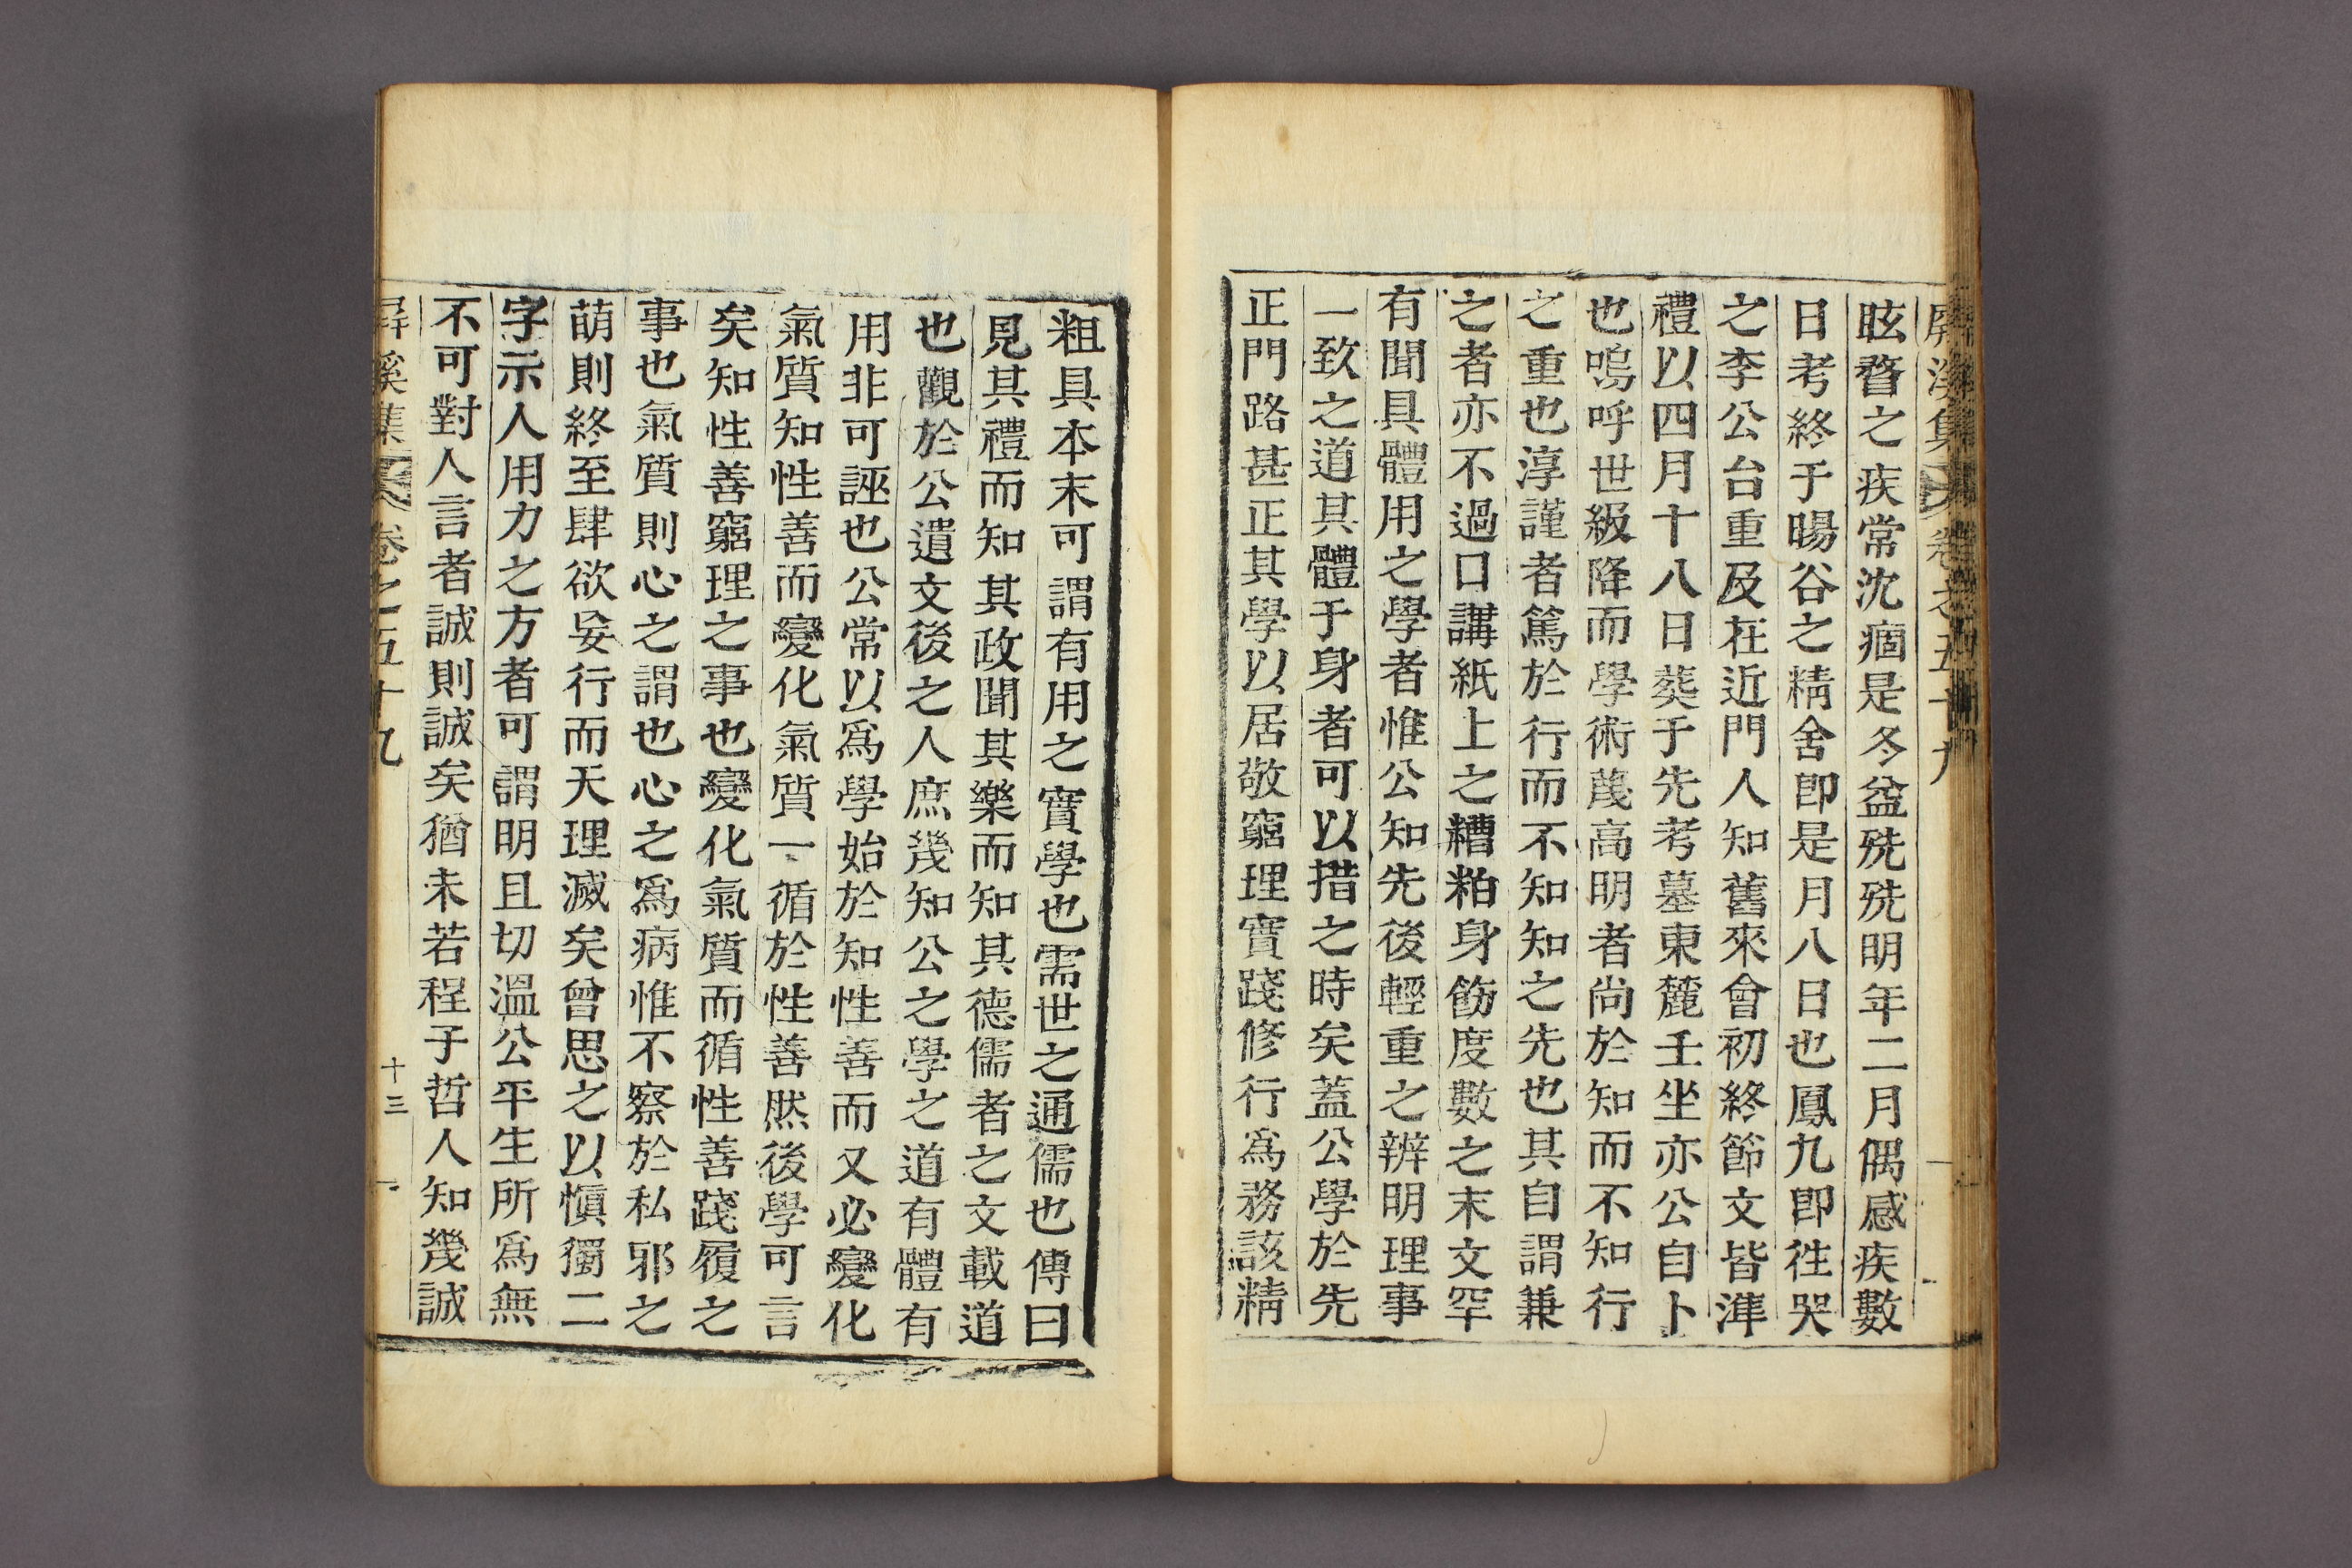 屛溪集 卷之五十九
眩瞀之疾常沈痼是冬益㱡㱡明年二月偶感疾數
日考終于暘谷之精舍卽是月八日也鳳九卽徃哭
之李公台重及在近門人知舊來會初終節文皆準
禮以四月十八日葬于先考墓東麓壬坐亦公自卜
也嗚呼世級降而學術蔑高明者尙於知而不知行
之重也淳謹者篤於行而不知知之先也其自謂兼
之者亦不過口講紙上之糟粕身飭度數之末文罕
有聞具體用之學者惟公知先後輕重之辨明理事
一致之道其體于身者可以措之時矣蓋公學於先
正門路甚正其學以居敬窮理實踐修行爲務該精
粗具本末可謂有用之實學也需世之通儒也傳曰
見其禮而知其政聞其樂而知其德儒者之文載道
也觀於公遺文後之人庶幾知公之學之道有體有
用非可誣也公常以爲學始於知性善而又必變化
氣質知性善而變化氣質一循於性善然後學可言
矣知性善窮理之事也變化氣質而循性善踐履之
事也氣質則心之謂也心之爲病惟不察於私邪之
萌則終至肆欲妄行而天理滅矣曾思之以愼獨二
字示人用力之方者可謂明且切溫公平生所爲無
不可對人言者誠則誠矣猶未若程子哲人知幾誠
屛溪集 卷之五十九 十三